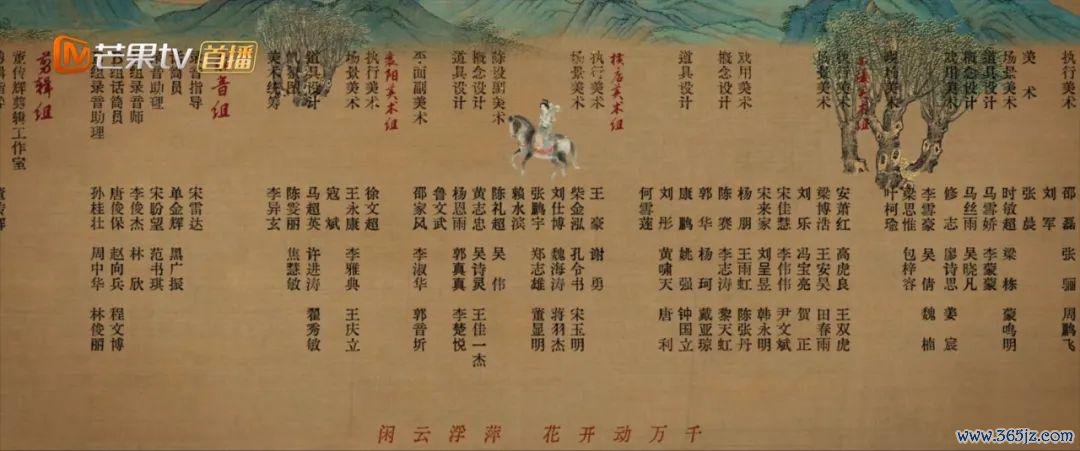 芒果tv 首播
邵磊 张骊 周鹏飞
刘军
美术 张晨
场景美术 时敏超 梁栋 蒙鸣明
概念设计 马雪娇 李蒙蒙
马丝雨 吴晓凡
戏用美术 修志 廖诗思 姜宸
李雪豪 吴倩 魏楠
梁思惟 包梓容
美术 叶柯瑜
美术组
执行美术 安萧红 高虎良 王双虎
场景美术 梁博浩 王安昊 田春雨
刘乐 冯宝亮 贺正
宋佳慧 李伟伟 尹文斌
宋来家 刘呈昱 韩永明
戏用美术 杨朋 王雨虹 陈张丹
概念设计 陈赛 李志涛 黎天虹
郭华 杨珂 戴亚琼
道具设计 康鹏 姚强 钟国立
刘彤 黄啸天 唐利
何雪莲
横店美术组
执行美术 王豪 谢勇
场景美术 柴金泓 孔令书 宋玉明
刘仕博 魏海涛 蒋羽杰
张鹏宇 郑志雄 董显明
赖水滨
陈设副美术 陈礼超 吴伟
概念设计 黄志忠 吴诗灵 王佳一杰
道具设计 杨恩雨 郭真真 李楚悦
鲁文武
平面副美术 邵家风 李淑华 郭音圻
襄阳美术组
执行美术 徐文超
场景美术 王永康 李雅典 王庆立
寇斌
道具设计 马超英 许进涛 翟秀敏
气氛图 陈雯丽 焦慧敏
美术统筹 李异玄
音组
音指导 宋雷达
筒员 单金辉 黑广振
音助理 宋盼望 范书琪
组录音师 李俊杰 林欣
组话筒员 唐俊保 赵向兵 程文博
组录音助理 孙桂壮 周中华 林俊丽
剪辑组
董传辉剪辑工作室
闲云浮萍 花开动万千
www.365jz.com